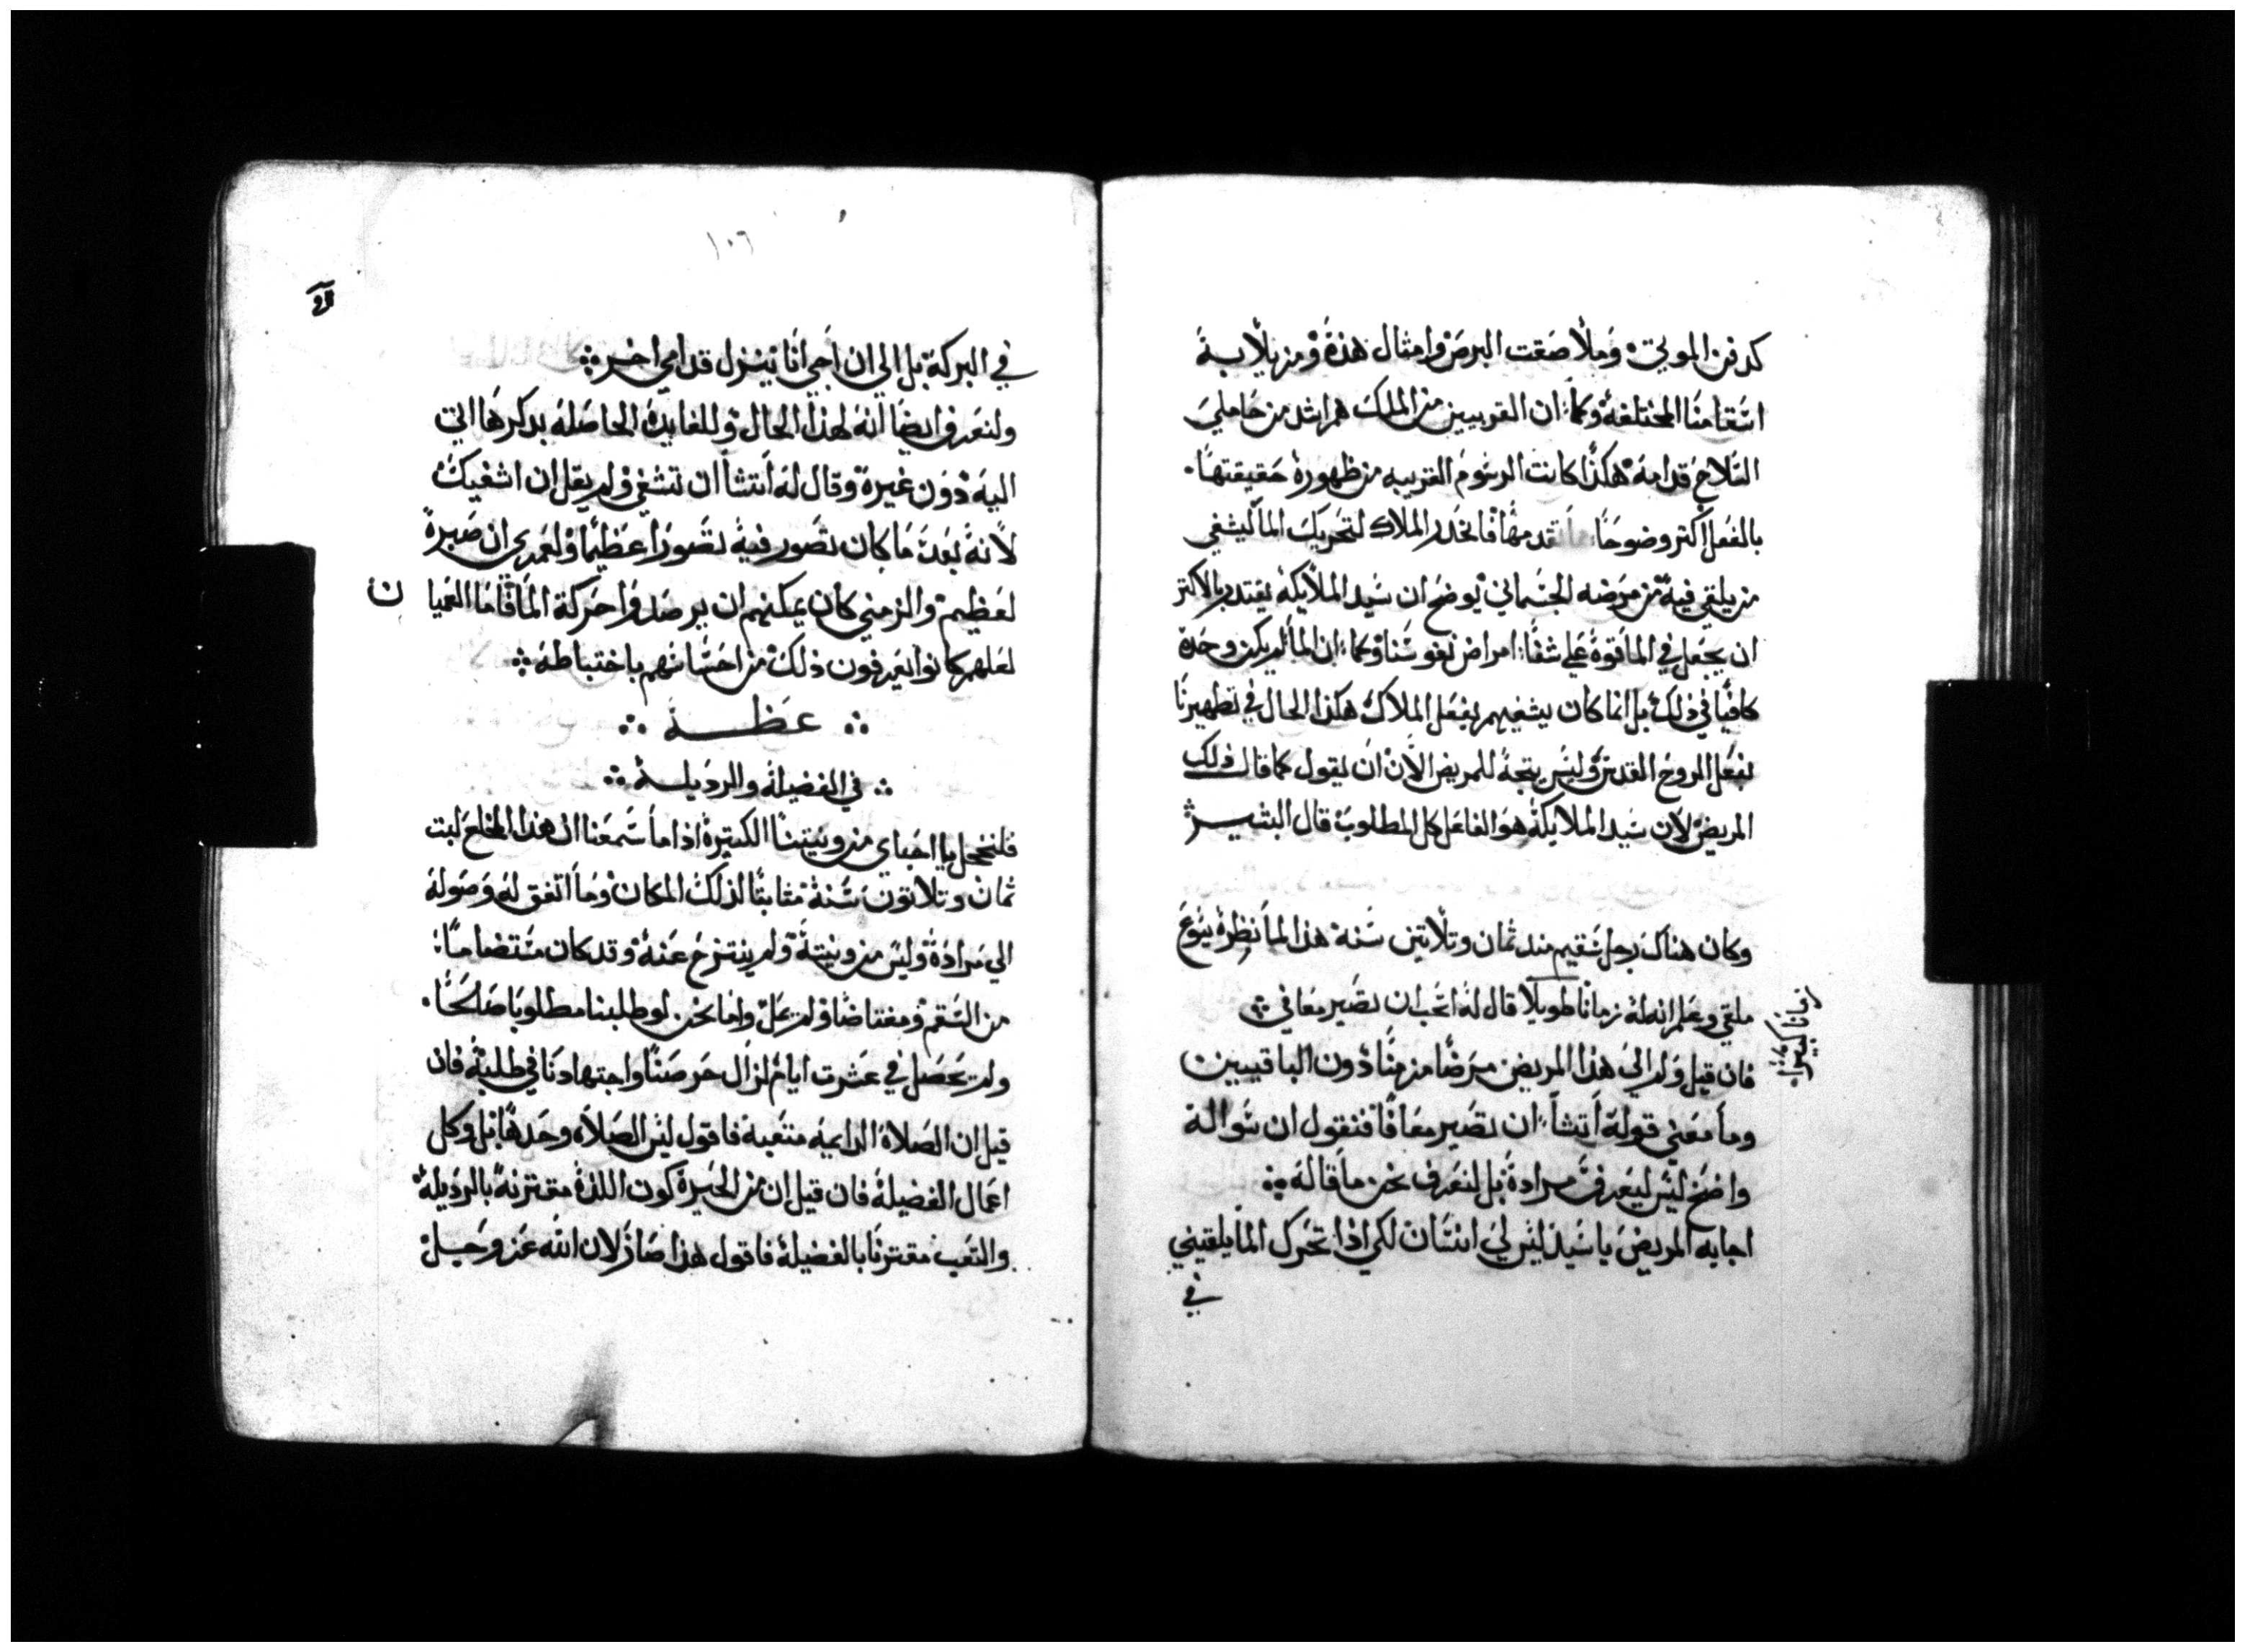 كدفن الموتي وملاصقت البرص وامثال هذه ومزيلا بة
اسقامنا المختلفة وكما ان القريبين من الملك هم اشد من حاملي
السلاح قدامه هكذا كانت الرسوم القريبه من ظهوره حقيقتها
بالفعل اكثر وضوحا تقدمها فانحدر الملاك لتحريك الما ليشفي
من يلقي فيه من مرضه الجسماني يوضح ان سيد الملايكة يقتدر بالاكثر
ان يجعل في الما قوة علي شفا امراض نفوسنا وكما ان الما لم يكن وحده
كافيا في ذلك بل انما كان يشفيهم بفعل الملاك هكذا الحال في تطهيرنا
بفعل الروح القدس وليس يتجة للمريض الان ان يقول كما قال ذلك
المريض لان سيد الملايكة هو الفاعل كل المطلوب قال البشير
وكان هناك رجل سقيم مند تمان وتلاتين سنة هذا لما نظره يسوع
ملقي وعلم ان له زمانا طويلا قال له اتحب ان تصير معافي
فان قيل ولم الي هذا المريض مرضا مزمنا دون الباقيين
وما معني قوله اتشا ان تصير معافا فنقول ان سواله
واضح ليس ليعرف مراده بل لنعرف نحن ما قاله
اجابه المريض يا سيد ليس لي انسان لكي اذا تحرك الما يلقيني
في
١٠٦
في البركة بل الي ان اجي انا ينزل قدامي اخر
ولنعرف ايضا انه لهذا الحال وللفايدة الحاصله بدكرها اتي
اليه دون غيره وقال له اتشا ان تشفي ولم يقل ان اشفيك
لانه بعد ما كان تصور فيه تصورا عظيما ولعمري ان صبره
لعظيم والزمني كان يمكنهم ان يرصدوا حركة الما فاما العميا ن
لعلهم كانوا يعرفون ذلك من احساسهم باختباطه
عظــة
في الفضيلة والرديلة
فلنخجل يا احباي من ونيتنا الكتيرة اذا ما سمعنا ان هذا المخلع لبت
تمان وتلاتون سنة متابتا لذلك المكان وما اتفق له وصوله
الي مراده وليس من ونيتة ولم ينتزح عنه وقد كان مستضاما
من السقم ومغتاضا ولم يمل واما نحن لو طلبنا مطلوبا صالحا
ولم يحصل في عشرت ايام لزال حرصنا واجتهادنا في طلبة فان
قيل ان الصلاة الدايمه متعبة فاقول ليس الصلاه وحدها بل وكل
اعمال الفضيلة فان قيل ان من الحيرة كون اللذة مقترنة بالرديلة
والتعب مقترنا بالفضيلة فاقول هذا صار لان الله عز وجل